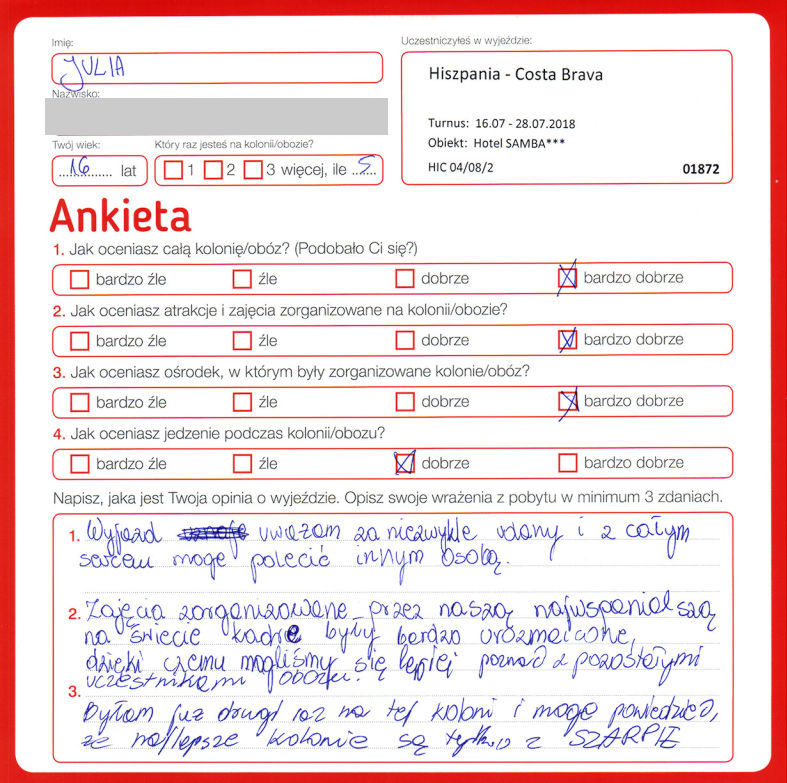 Imię:
JULIA
Uczestniczyłeś w wyjeździe:
Hiszpania - Costa Brava
Turnus: 16.07 - 28.07.2018
Obiekt: Hotel SAMBA***
HIC 04/08/2
01872
Nazwisko:
Twój wiek:
16 lat
Który raz jesteś na kolonii/obozie?
1 2 3 więcej, ile 5
Ankieta
1. Jak oceniasz całą kolonię/obóz? (Podobało Ci się?)
bardzo źle źle dobrze bardzo dobrze
2. Jak oceniasz atrakcje i zajęcia zorganizowane na kolonii/obozie?
bardzo źle źle dobrze bardzo dobrze
3. Jak oceniasz ośrodek, w którym były zorganizowane kolonie/obóz?
bardzo źle źle dobrze bardzo dobrze
4. Jak oceniasz jedzenie podczas kolonii/obozu?
bardzo źle źle dobrze bardzo dobrze
Napisz, jaka jest Twoja opinia o wyjeździe. Opisz swoje wrażenia z pobytu w minimum 3 zdaniach.
1. Wyjazd uważam za niezwykle udany i z całym
sercem mogę polecić innym osobą.
2. Zajęcia zorganizowane przez naszą najwspanialszą
na świecie kadrę były bardzo urozmaicone,
dzięki czemu mogliśmy się lepiej poznać z pozostałymi
uczestnikami obozu.
3. Byłam już drugi raz na tej koloni i mogę powiedzieć,
że najlepsze kolonie są tylko z SZARPIE